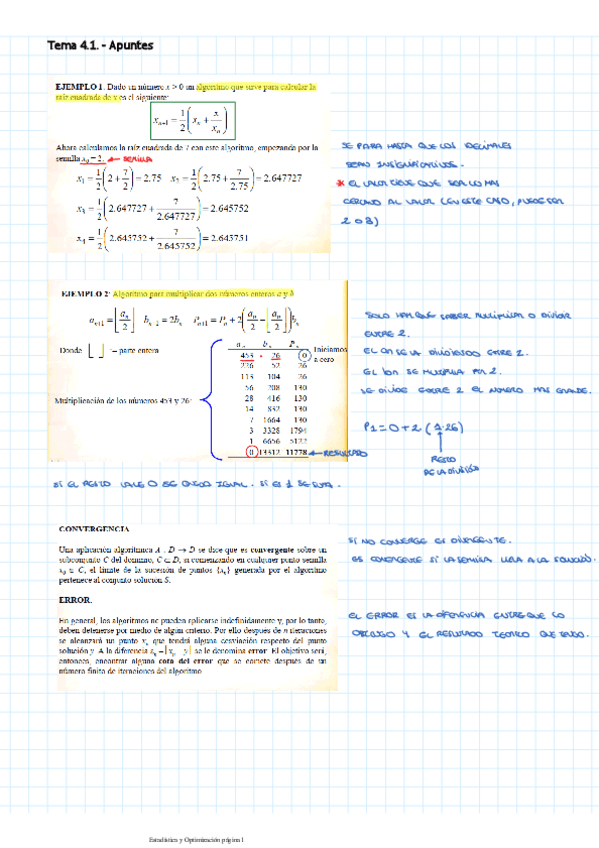 Tema 4.1. - Apuntes
EJEMPLO 1. Dado un número x > 0 un algoritmo que sirve para calcular la
raíz cuadrada de x es el siguiente:
x_{n+1} = 1/2 (x_n + x/x_n)
Ahora calculamos la raíz cuadrada de 7 con este algoritmo, empezando por la
semilla x_0 = 2. ← SEMILLA
x_1 = 1/2 (2 + 7/2) = 2.75 x_2 = 1/2 (2.75 + 7/2.75) = 2.647727
x_3 = 1/2 (2.647727 + 7/2.647727) = 2.645752
x_4 = 1/2 (2.645752 + 7/2.645752) = 2.645751
SE PARA HASTA QUE LOS DECIMALES
SEAN INSIGNIFICATIVOS.
* EL VALOR TIENE QUE SER LO MAS
CERCANO AL VALOR (EN ESTE CASO, PUEDE SER
2 O 3)
EJEMPLO 2: Algoritmo para multiplicar dos números enteros a y b
a_{n+1} = ⌊a_n/2⌋ b_{n+1} = 2b_n P_{n+1} = P_n + 2(a_n/2 − ⌊a_n/2⌋)b_n
Donde ⌊ ⌋ = parte entera
Multiplicación de los números 453 y 26:
a_n b_n P_n
453 • 26 0 Iniciamos a cero
226 52 26
113 104 26
56 208 130
28 416 130
14 832 130
7 1664 130
3 3328 1794
1 6656 5122
0 13312 11778 ← RESULTADO
SOLO HAY QUE SABER MULTIPLICAR O DIVIDIR
ENTRE 2.
EL an SE VA DIVIDIENDO ENTRE 2.
EL bn SE MULTIPLICA POR 2.
SE DIVIDE ENTRE 2 EL NUMERO MAS GRANDE.
P1 = 0 + 2 (1·26)
RESTO
DE LA DIVISIÓN
SI EL RESTO VALE 0 SE QUEDA IGUAL. SI ES 1 SE
CONVERGENCIA
Una aplicación algorítmica A : D → D se dice que es convergente sobre un
subconjunto C del dominio, C ⊂ D, si comenzando en cualquier punto semilla
x_0 ∈ C, el límite de la sucesión de puntos {x_n} generada por el algoritmo
pertenece al conjunto solución S.
SI NO CONVERGE ES DIVERGENTE.
ES CONVERGENTE SI LA SEMILLA LLEVA A LA SOLUCIÓN.
ERROR.
En general, los algoritmos no pueden aplicarse indefinidamente y, por lo tanto,
deben detenerse por medio de algún criterio. Por ello después de n iteraciones
se alcanzará un punto x_n que tendrá alguna desviación respecto del punto
solución y. A la diferencia ε_n = |x_n − y| se le denomina error. El objetivo será,
entonces, encontrar alguna cota del error que se comete después de un
número finito de iteraciones del algoritmo
EL ERROR ES LA DIFERENCIA ENTRE QUE LO
OBTENGO Y EL RESULTADO TEORICO QUE TENGO.
Estadística y Optimización página 1